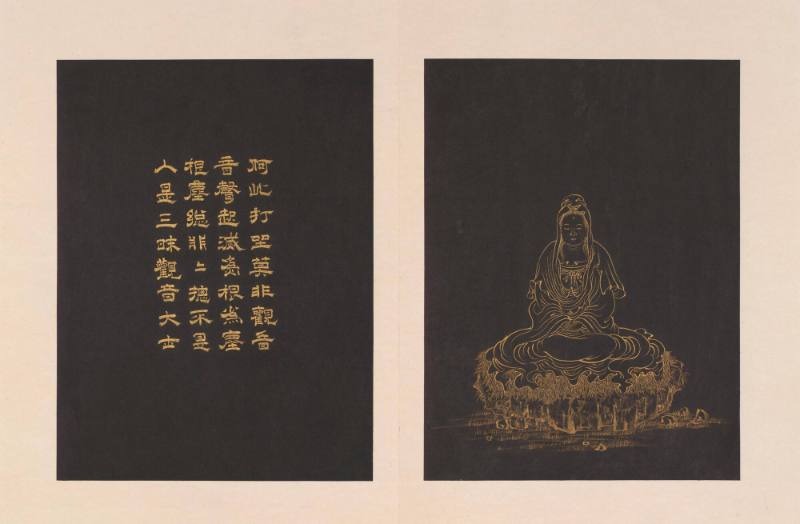 阿此打坐莫非觀音
音聲起滅為根為塵
根塵總非〻總不是
人是三昧觀音大士